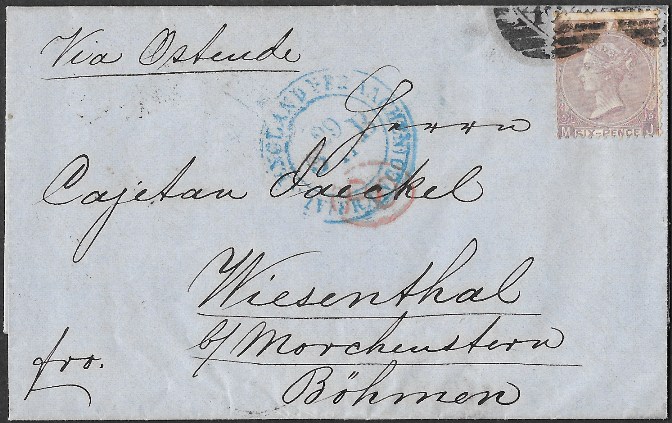 Via Ostende
Herrn
Cajetan Jaeckel
Wiesenthal
b/ Morchenstern
Böhmen
fro.
M SIX-PENCE J